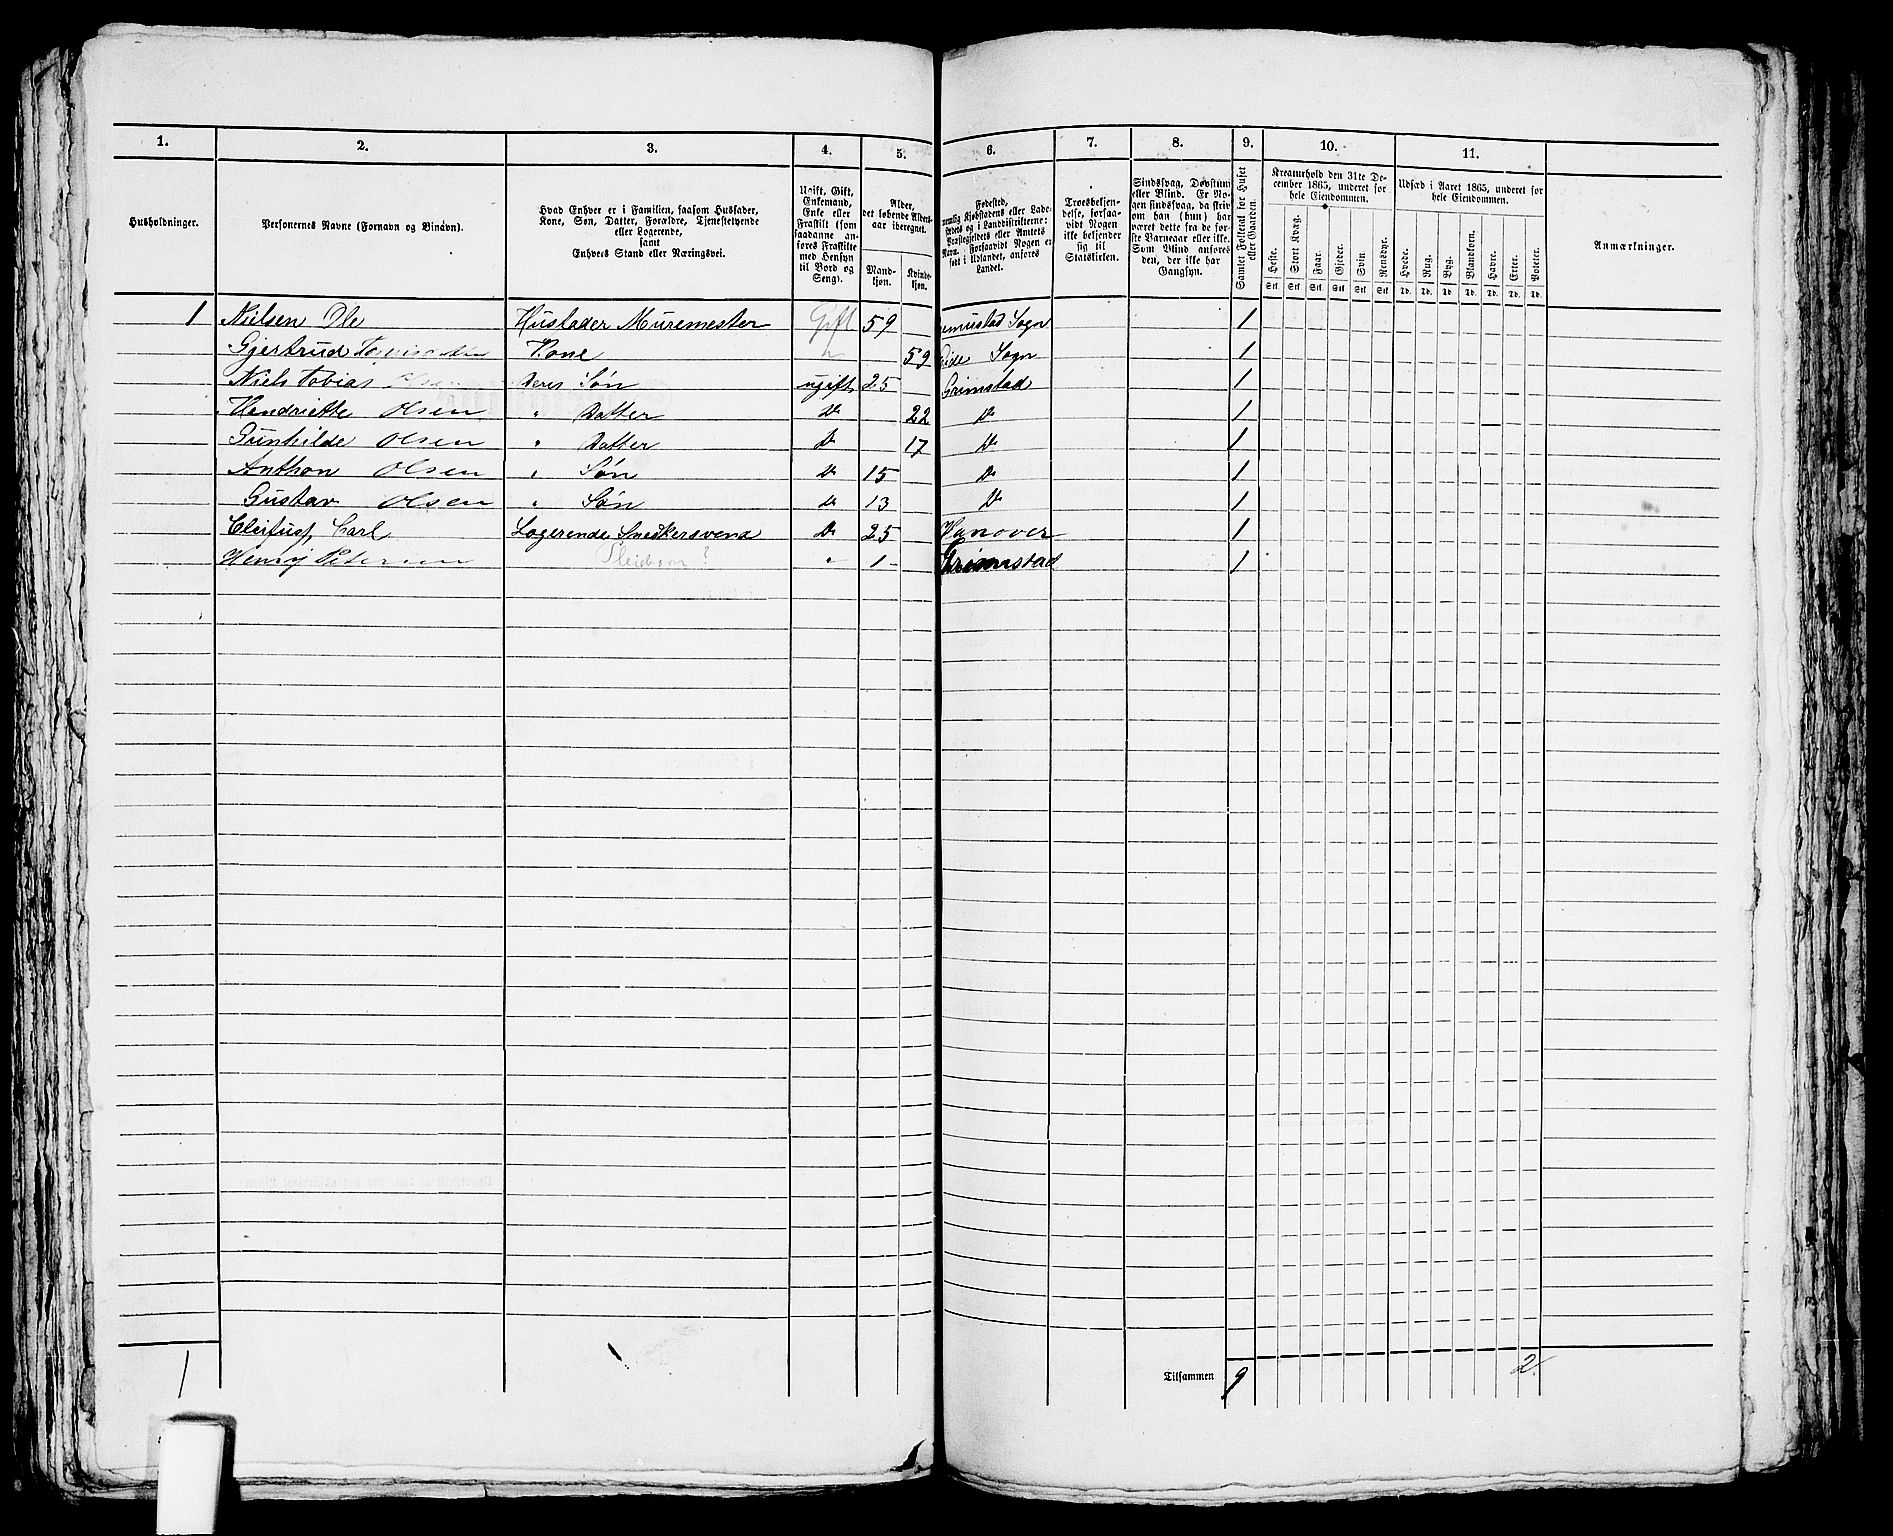 1. 2. 3. 4. 5. 6. 7. 8. 9. 10. 11.
Husholdninger.
Personernes Navne (Fornavn og Binavn).
Hvad Enhver er i Familien, saasom Husfader,
Kone, Søn, Datter, Forældre, Tjenestetyende
eller Logerende,
samt
Enhvers Stand eller Næringsvei.
Ugift, Gift,
Enkemand,
Enke eller
Fraskilt (som
saadanne an-
føres Fraskilte
med Hensyn
til Bord og
Seng).
Alder,
det løbende Alders-
aar iberegnet.
Mand-
kjøn.
Kvinde-
kjøn.
Fødested,
Landet.
Troesbekjen-
delse, forsaa-
vidt Nogen
ikke bekjender
sig til
Statskirken.
Sindssvag, Døvstum
eller Blind. Er No-
gen sindssvag, da skriv
om han (hun) har
været dette fra de før-
ste Barneaar eller ikke.
Som Blind anføres
den, der ikke har
Gangsyn.
Samlet Folketal for Huset
eller Gaarden.
Kreaturhold den 31te De-
cember 1865, underet for
hele Eiendommen.
Heste. Stort Kvæg. Faar. Gjeder. Svin. Rensdyr.
Stk. Stk. Stk. Stk. Stk. Stk.
Udsæd i Aaret 1865, underet for
hele Eiendommen.
Hvede. Rug. Byg. Blandkorn. Havre. Erter. Poteter.
Td. Td. Td. Td. Td. Td. Td.
Anmærkninger.
1 Nielsen Ole Husfader Muremester Gift 59 Sogn 1
Gjertrud Kone " 59 Eide Sogn 1
Niels Tobias Olsen Deres Søn ugift 25 Grimstad 1
Hendriette Olsen " Datter Do 22 Do 1
Gunhilde Olsen " Datter Do 17 Do 1
Anthon Olsen " Søn Do 15 Do 1
Gustav Olsen " Søn Do 13 Do 1
Carl Logerende Snedkersvend Do 25 Hanover 1
Henry Petersen Pleiebarn? " 1 Grimstad 1
1 Tilsammen 9 2